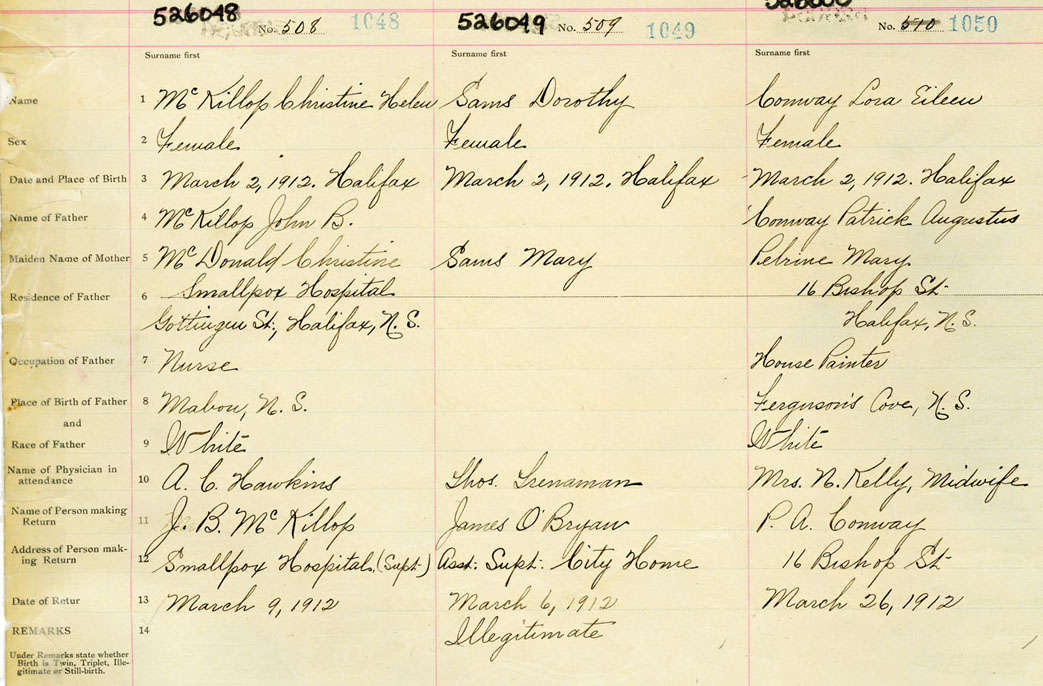 526048 526049
No. 508 1048 No. 509 1049 No. 510 1050
Surname first Surname first Surname first
Name 1 McKillop Christine Helen Sams Dorothy Conway Lora Eileen
Sex 2 Female Female Female
Date and Place of Birth 3 March 2, 1912. Halifax March 2, 1912. Halifax March 2, 1912. Halifax
Name of Father 4 McKillop John B. Conway Patrick Augustus
Maiden Name of Mother 5 McDonald Christine Sams Mary Pelrine Mary
Residence of Father 6 Smallpox Hospital 16 Bishop St.
Gottingen St., Halifax, N.S. Halifax, N.S.
Occupation of Father 7 Nurse House Painter
Place of Birth of Father 8 Mabou, N.S. Ferguson's Cove, N.S.
and
Race of Father 9 White White
Name of Physician in 10 A. C. Hawkins Thos. Trenaman Mrs. N. Kelly, Midwife
attendance
Name of Person making 11 J. B. McKillop James O'Bryan P. A. Conway
Return
Address of Person mak- 12 Smallpox Hospital, (Supt.) Asst. Supt. City Home 16 Bishop St
ing Return
Date of Retur 13 March 9, 1912 March 6, 1912 March 26, 1912
REMARKS 14 Illegitimate
Under Remarks state whether
Birth is Twin, Triplet, Ille-
gitimate or Still-birth.